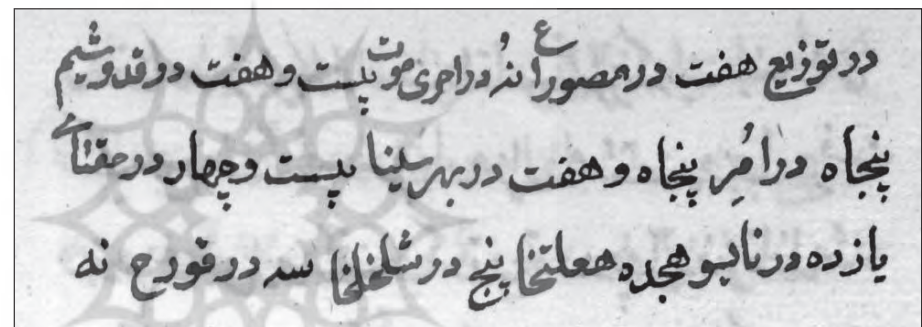 در توزیع هفت در مصوراع نُه در احری موت بیست و هفت در قدوشیم
پنجاه در امُرِ پنجاه و هفت در بهر سینا بیست و چهار در حقتای
یازده در ناسو هجده هعلتخا پنج در شلخلخا سه در قورح نه